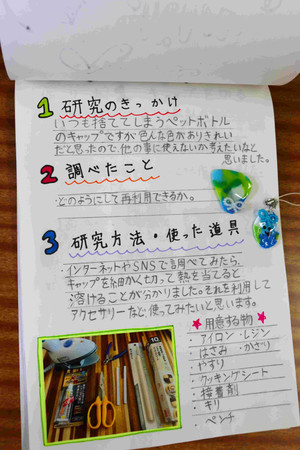 1 研究のきっかけ
いつも捨ててしまうペットボトル
のキャップですが色んな色がありきれい
だと思ったので、他の事に使えないか考えたいなと
思いました。
2 調べたこと
・どのようにして再利用できるか。
3 研究方法・使った道具
・インターネットやSNSで調べてみたら、
キャップを細かく切って熱を当てると
溶けることが分かりました。それを利用して
アクセサリーなど使ってみたいと思います。
★用意する物★
・アイロン・レジン
・はさみ・かざり
・やすり
・クッキングシート
・接着剤
・キリ
・ペンチ